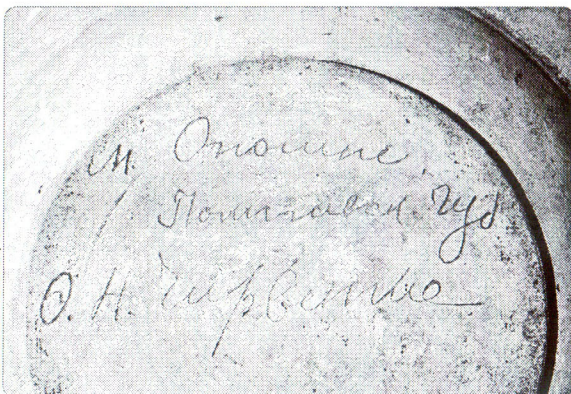 м. Опошне,
Полтавск. губ
Ѳ. Н. Чирвенко